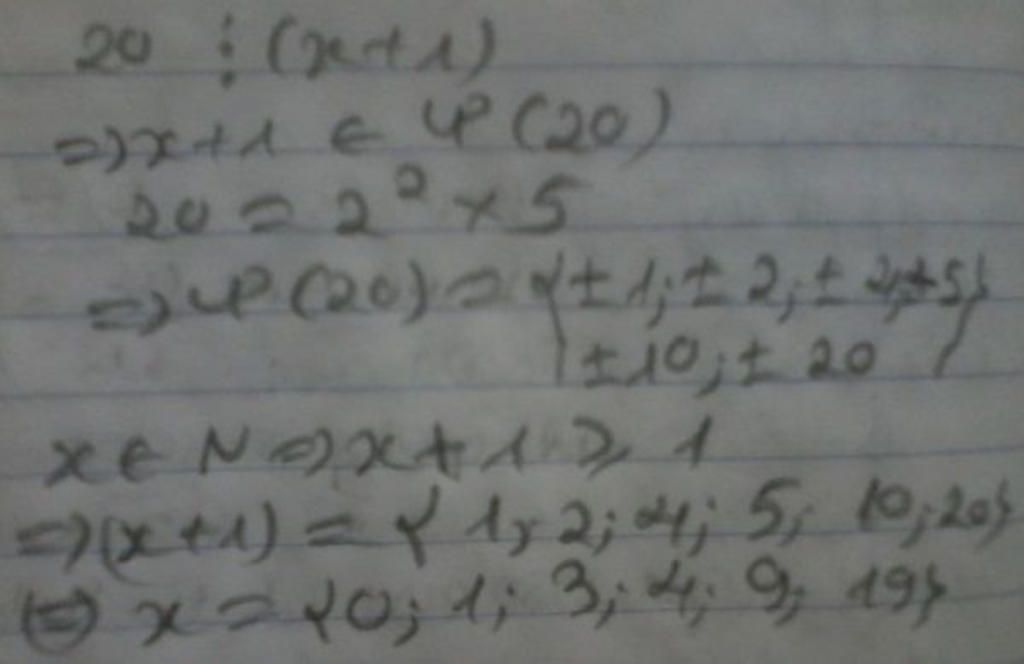 20 ⋮ (x+1)
=> x+1 ∈ Ư(20)
20 = 2² × 5
=> Ư(20) = {±1; ±2; ±4; ±5;
±10; ±20}
x ∈ N => x+1 ≥ 1
=> (x+1) = {1; 2; 4; 5; 10; 20}
(=) x = {0; 1; 3; 4; 9; 19}